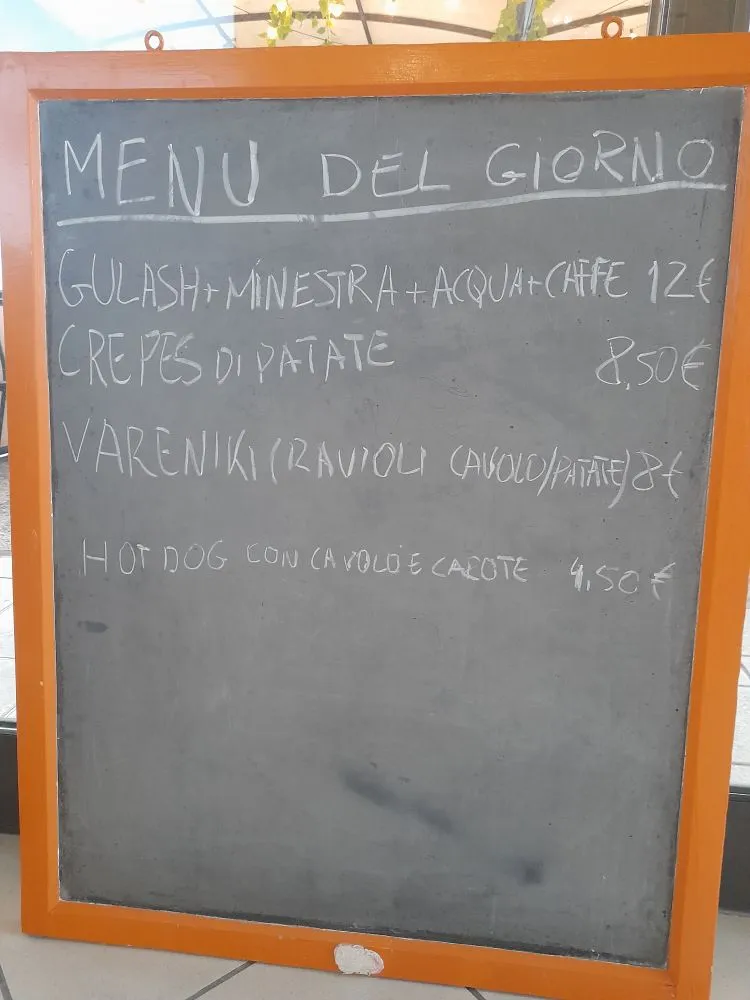 MENU DEL GIORNO
GULASH+MINESTRA+ACQUA+CAFFE 12€
CREPES DI PATATE 8,50€
VARENIKI (RAVIOLI CAVOLO/PATATE) 8€
HOT DOG CON CAVOLO E CAROTE 4,50€